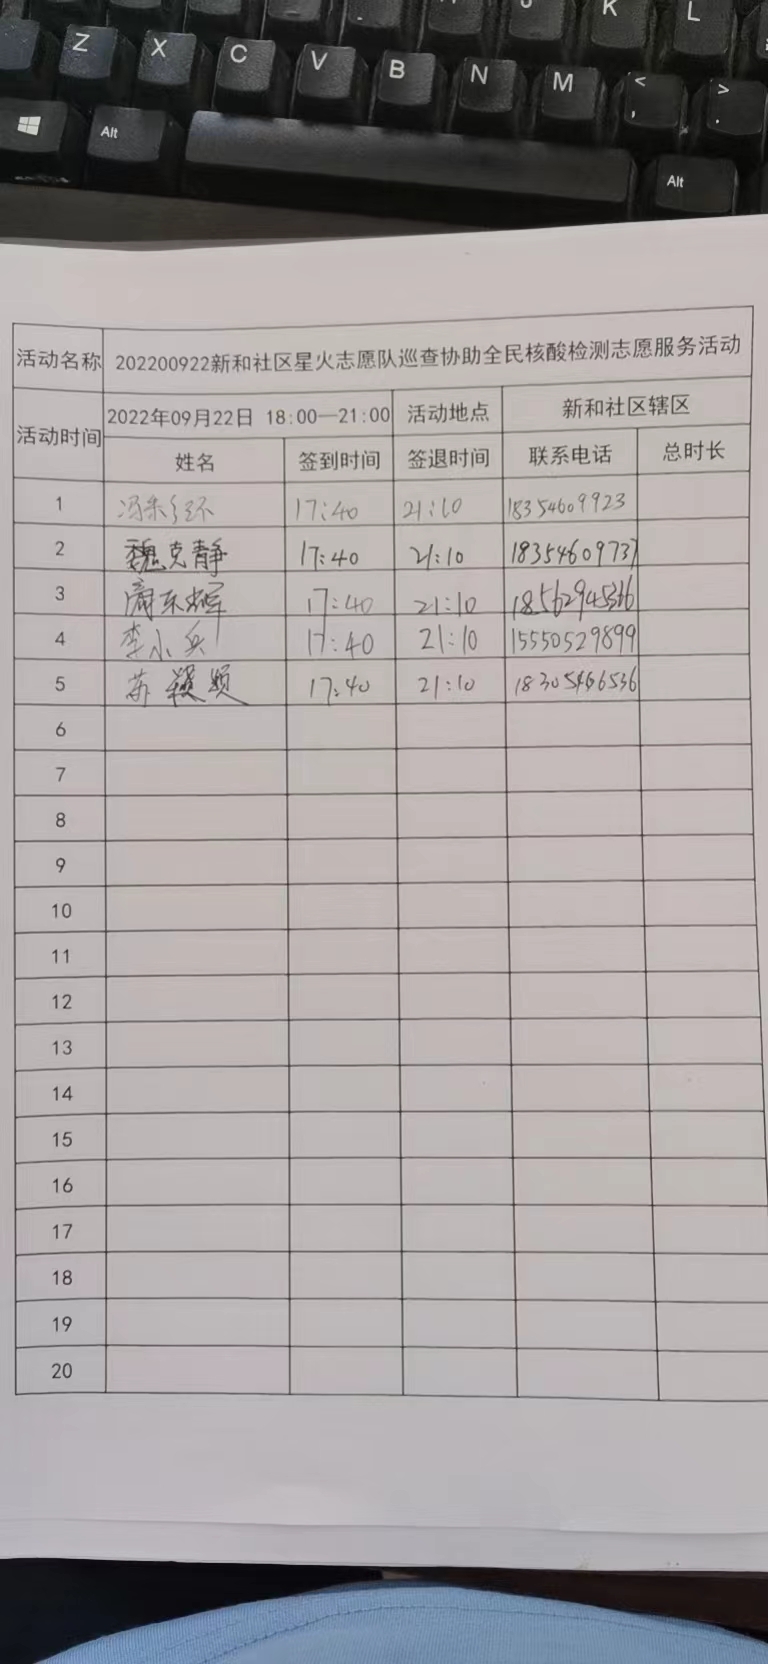 K L
Z X C V B N M < ,  > .
Alt Alt
活动名称 202200922新和社区星火志愿队巡查协助全民核酸检测志愿服务活动
活动时间 2022年09月22日 18:00—21:00 活动地点 新和社区辖区
姓名 签到时间 签退时间 联系电话 总时长
1 17:40 21:10 18354609923
2 魏克静 17:40 21:10 18354609737
3 17:40 21:10
4 李小兵 17:40 21:10 15550529899
5 苏 17:40 21:10
6
7
8
9
10
11
12
13
14
15
16
17
18
19
20